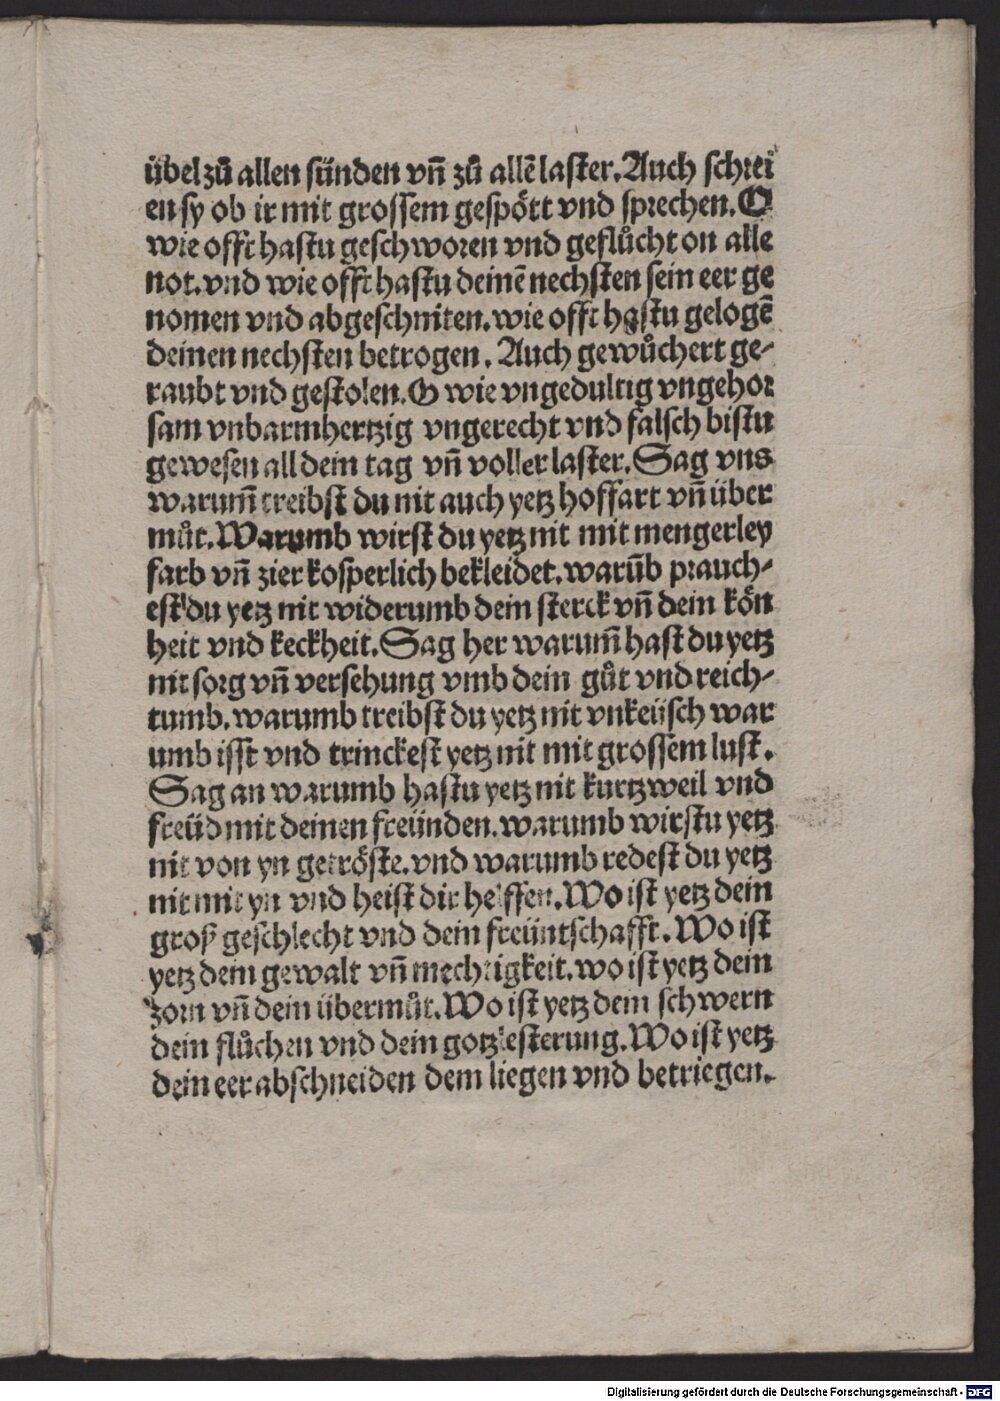 übel zů allen sünden vn̄ zů allē laster. Auch schrei
en sy ob ir mit grossem gespött vnd sprechen. O
wie offt hastu geschworen vnd geflůcht on alle
not. vnd wie offt hastu deinē nechsten sein eer ge
nomen vnd abgeschniten. wie offt hastu gelogē
deinen nechsten betrogen. Auch gewůchert ge-
raubt vnd gestolen. O wie vngedultig vngehor
sam vnbarmhertzig vngerecht vnd falsch bistu
gewesen all dein tag vn̄ voller laster. Sag vns
warum̄ treibst du nit auch yetz hoffart vn̄ über
můt. Warumb wirst du yetz nit mit mengerley
farb vn̄ zier kosperlich bekleidet. warūb prauch-
est du yetz nit widerumb dein sterck vn̄ dein kön
heit vnd keckheit. Sag her warum̄ hast du yetz
nit sorg vn̄ versehung vmb dein gůt vnd reich-
tumb. warumb treibst du yetz nit vnkeüsch war
umb isst vnd trinckest yetz nit mit grossem lust.
Sag an warumb hastu yetz nit kurtzweil vnd
freüd mit deinen freünden. warumb wirstu yetz
nit von yn getröste. vnd warumb redest du yetz
nit mit yn vnd heist dir helffen. Wo ist yetz dein
groß geschlecht vnd dein freüntschafft. Wo ist
yetz dein gewalt vn̄ mechtigkeit. wo ist yetz dein
zorn vn̄ dein übermůt. Wo ist yetz dein schwern
dein flůchen vnd dein gotzlesterung. Wo ist yetz
dein eer abschneiden dein liegen vnd betriegen.
Digitalisierung gefördert durch die Deutsche Forschungsgemeinschaft - DFG